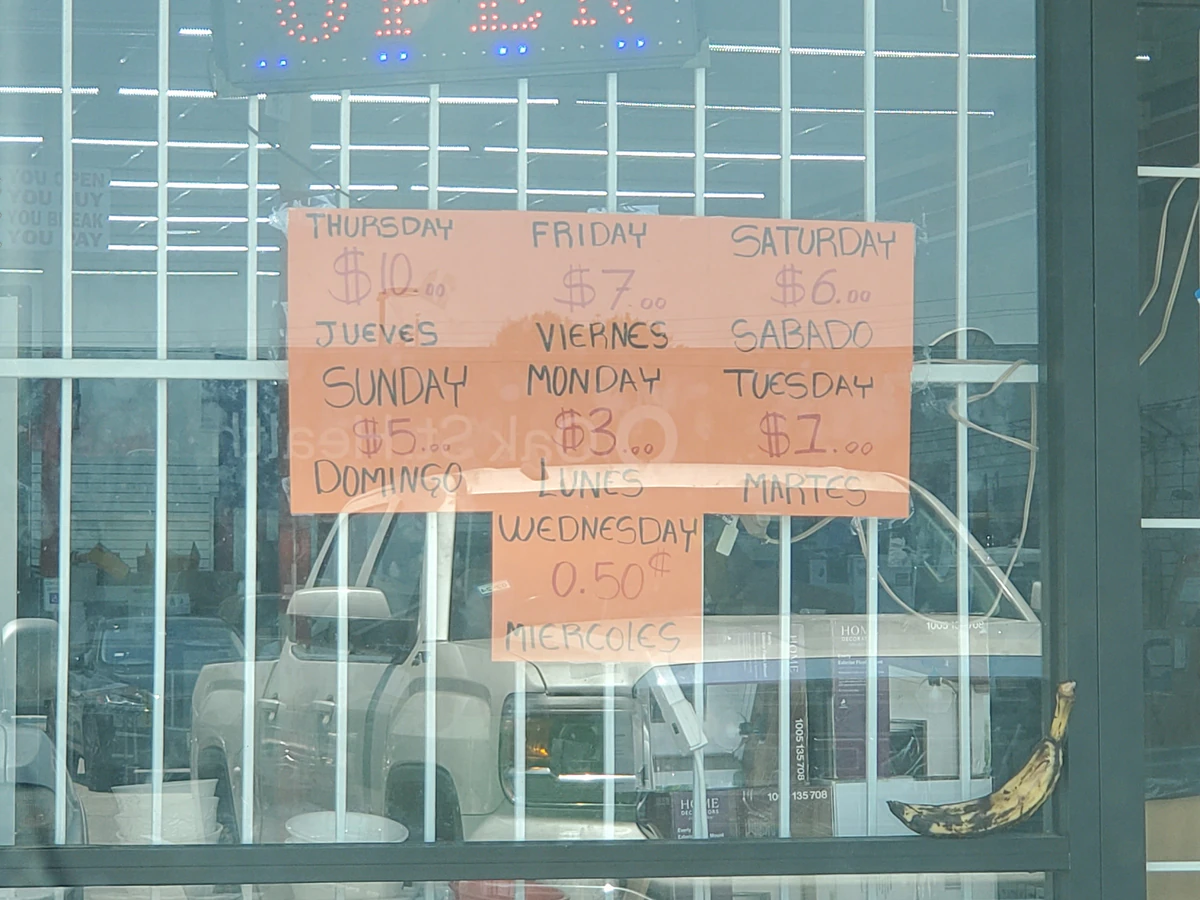 OPEN
YOU OPEN
YOU BUY
YOU BREAK
YOU PAY
THURSDAY
$10.00
JUEVES
FRIDAY
$7.00
VIERNES
SATURDAY
$6.00
SABADO
SUNDAY
$5.00
DOMINGO
MONDAY
$3.00
LUNES
TUESDAY
$1.00
MARTES
WEDNESDAY
0.50¢
MIERCOLES
Oak St Health
HOME
1005 135 708
HOME
1005 135 708
HOME